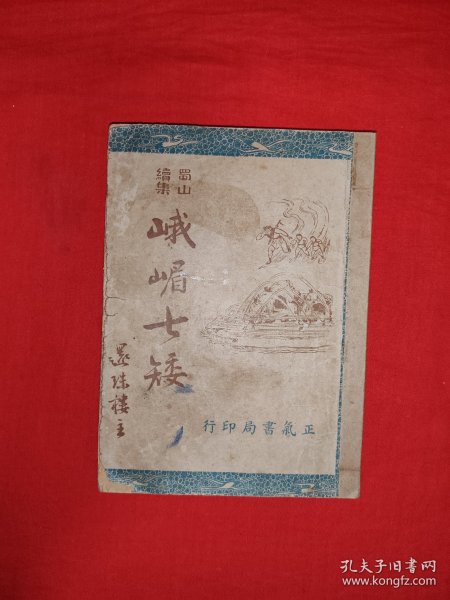 蜀山
續集
峨嵋七矮
還珠樓主
行印局書氣正
孔夫子旧书网
www.kongfz.com